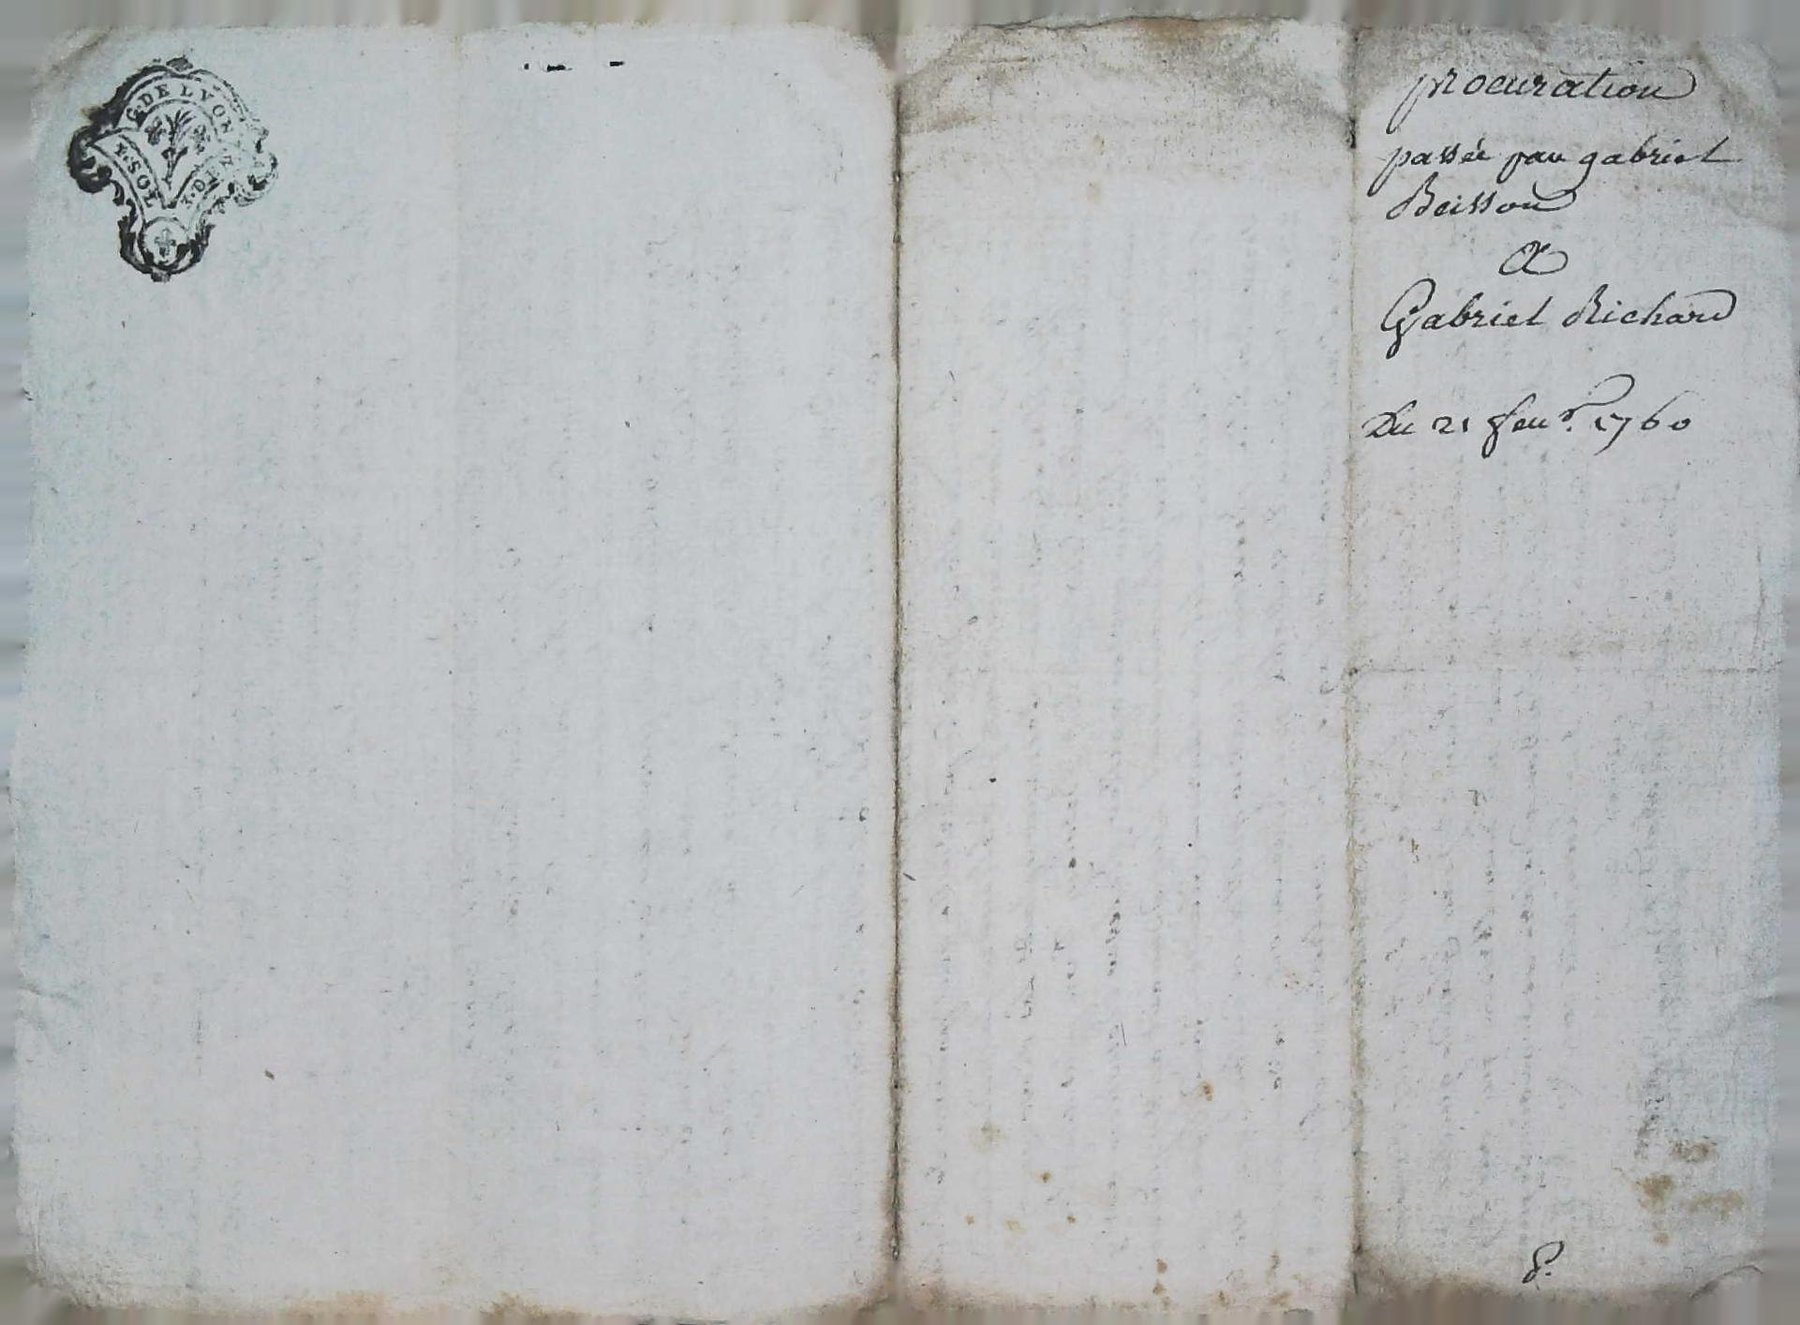 G. DE LYON
procuration
passée par gabriel
Beisson
a
Gabriel Richard
Du 21 feur. 1760
8.